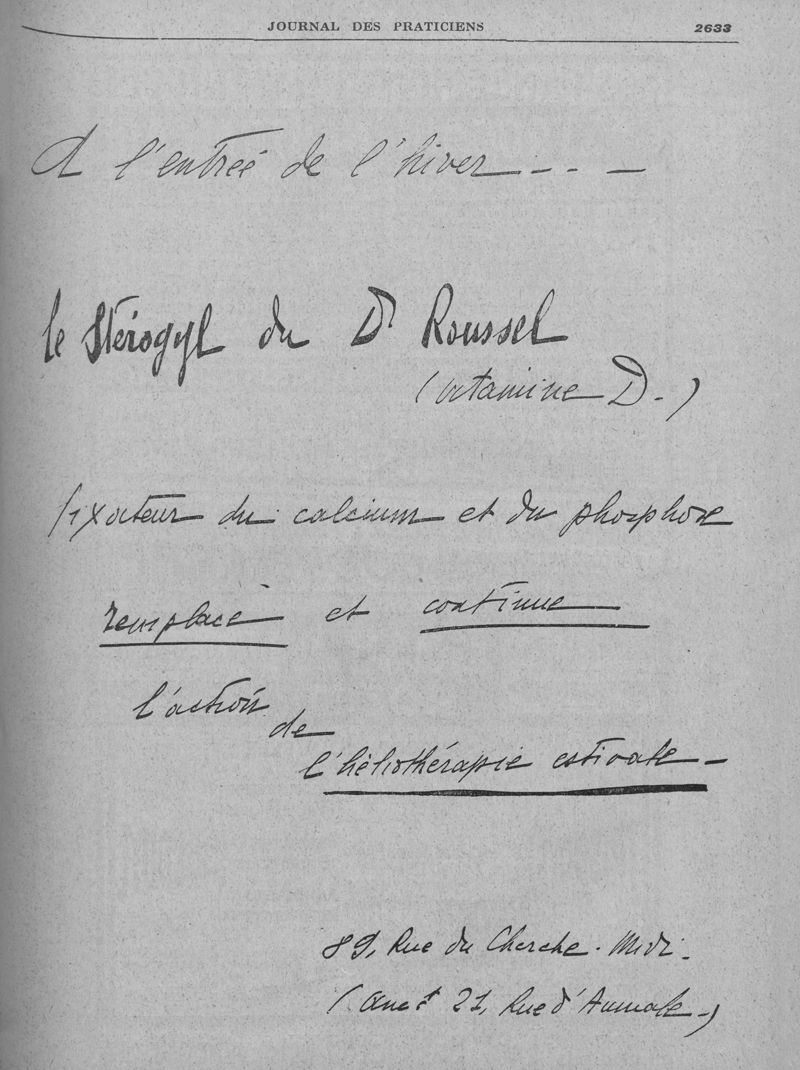 JOURNAL DES PRATICIENS 2633
A l'entrée de l'hiver - - -
le Stérogyl du Dr Roussel
(vitamine D.)
fixateur du calcium et du phosphore
remplace et continue
l'action
de
l'héliothérapie estivale -
89, Rue du Cherche-Midi.
(anct 21, Rue d'Aumale -)